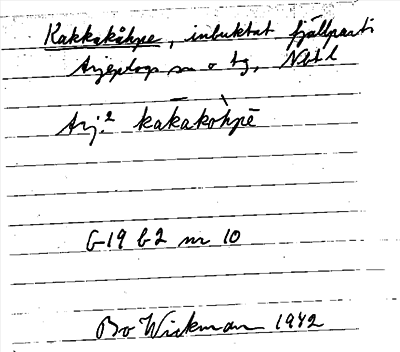 Kakkakåhpe, inbuktat fjällparti
Arjeplogs sn o tg, Nbtl
Arj.2 kākakòhpē
G 19 b 2 nr 10
Bo Wickman 1942